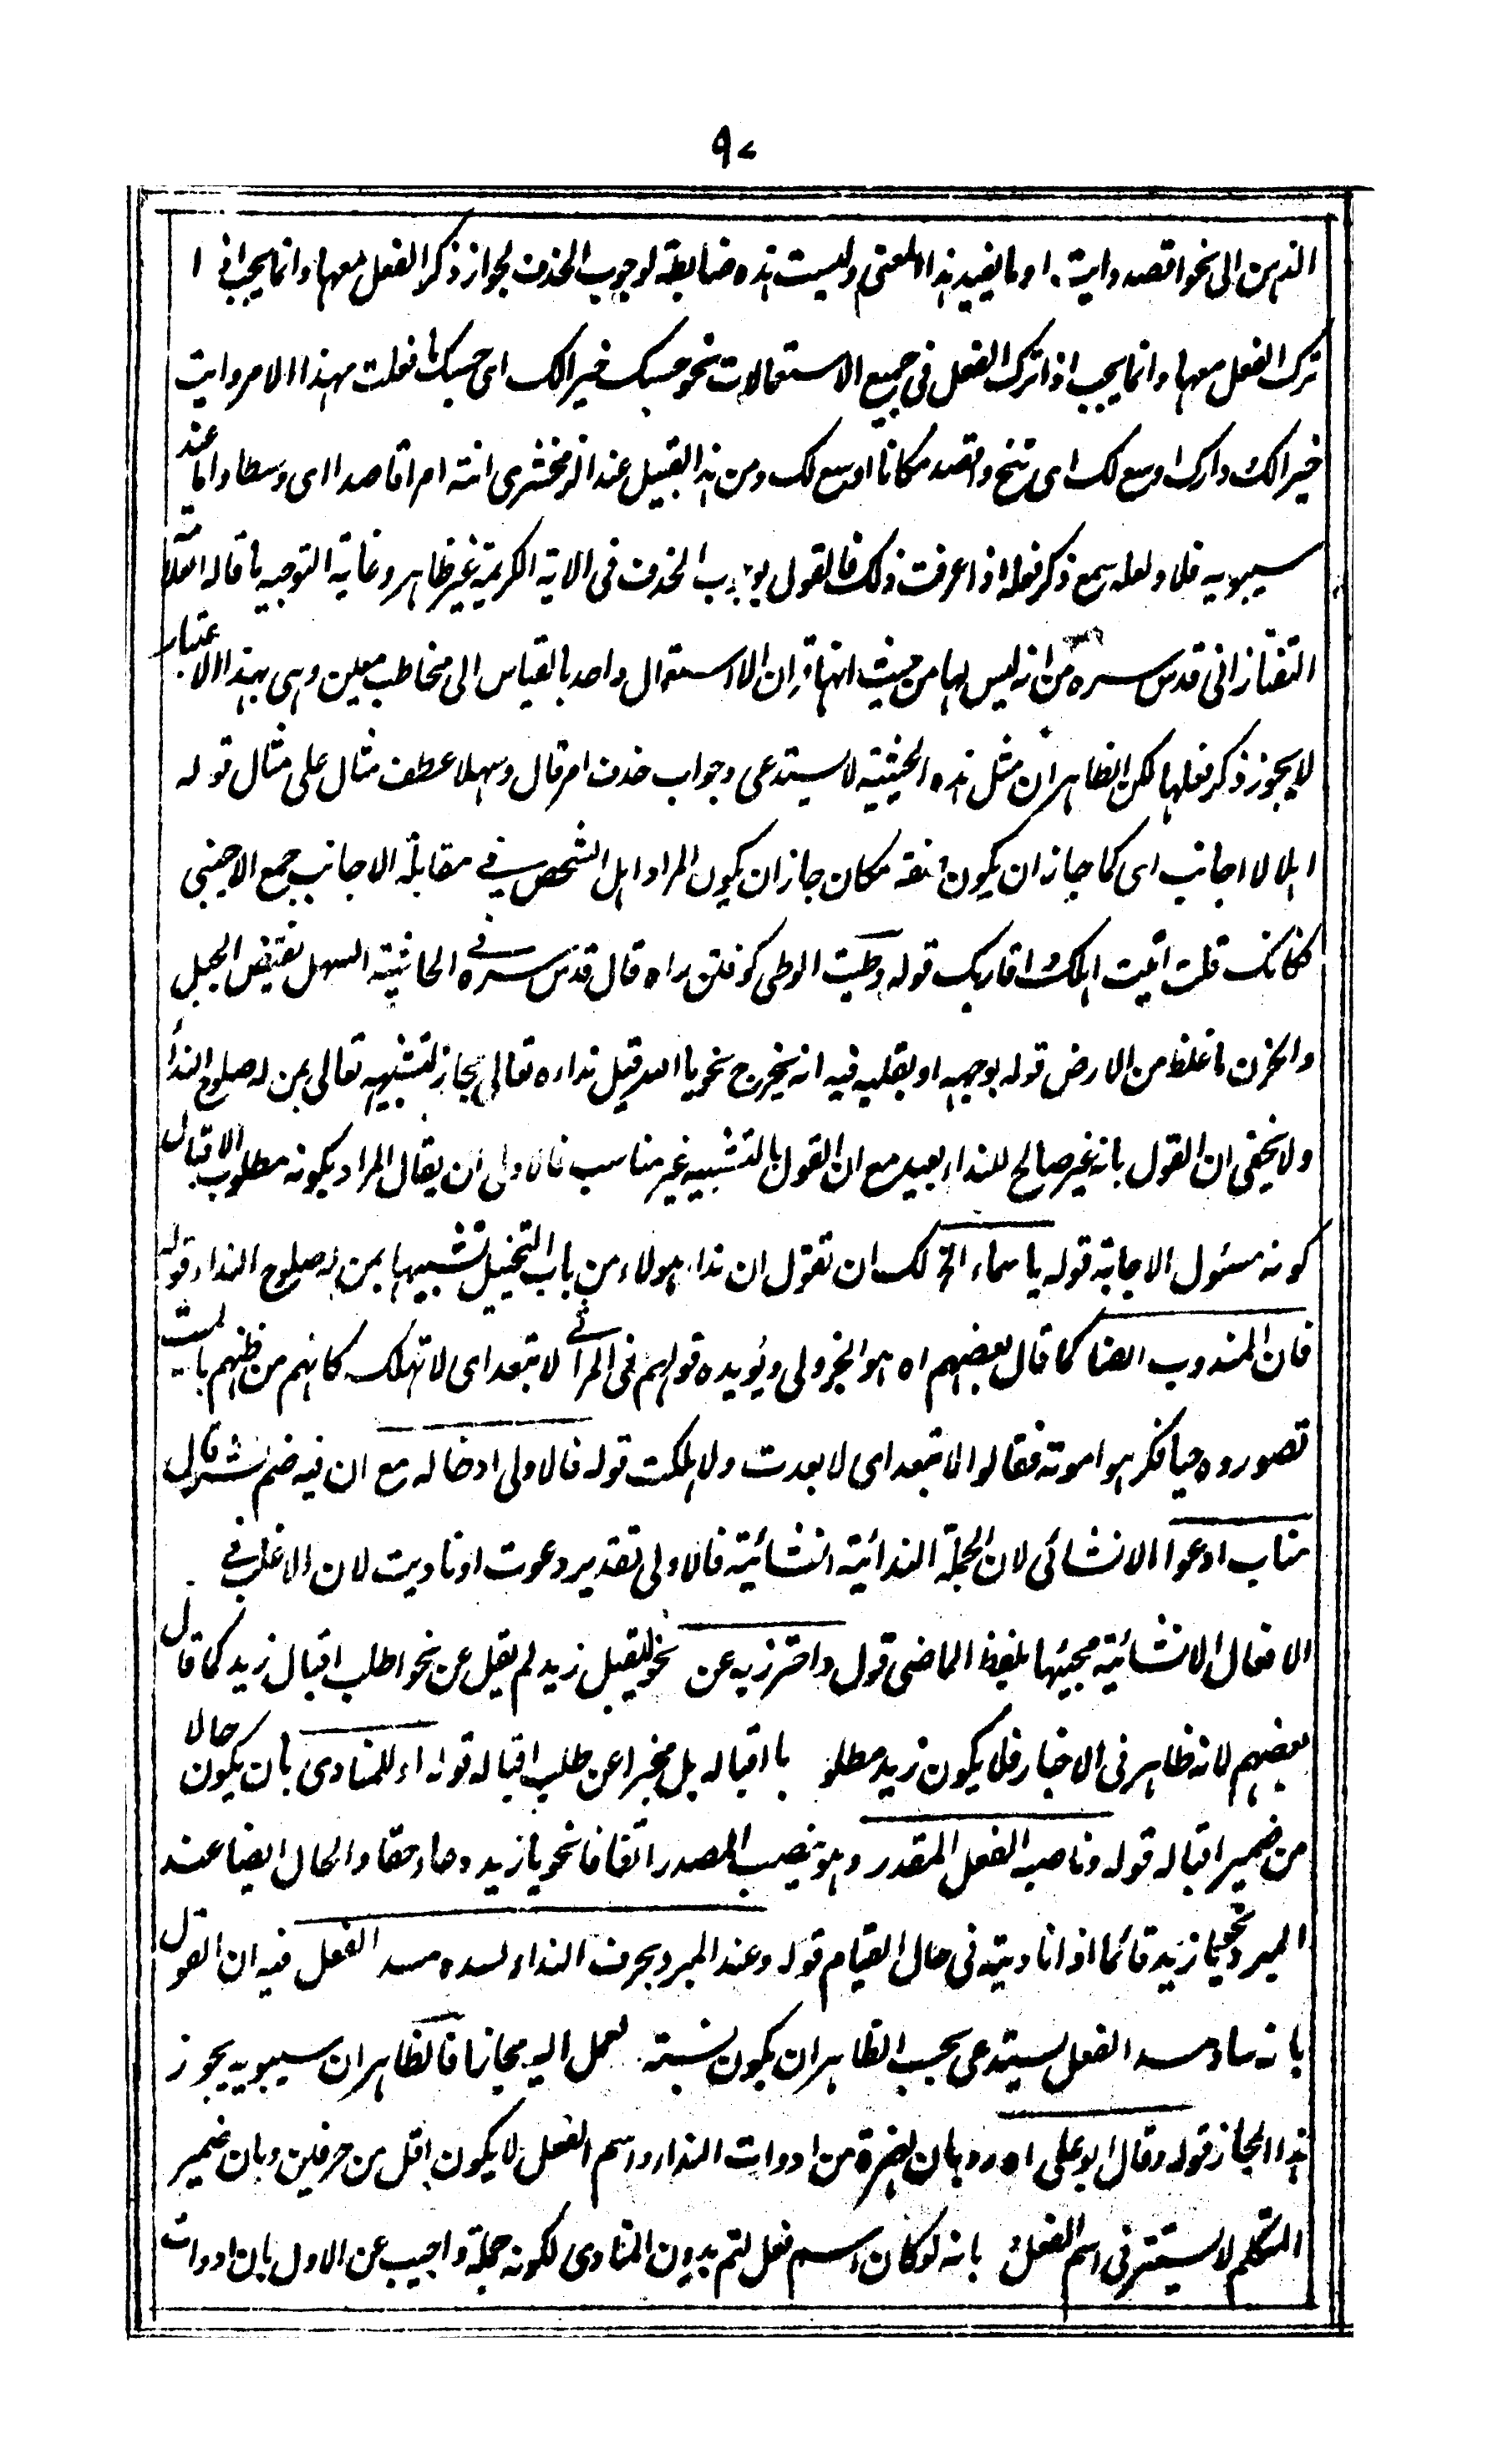 ٩٧
الذهن الى نحو اقصد وايت او ما يفيد هذا المعنى وليست هذه ضابطة لوجوب الحذف لجواز ذكر الفعل معها وانما يجب اذا
ترك الفعل معها وانما يجب اذا ترك الفعل فى جميع الاستعمالات نحو حسبك خيرا لك اى حسبك ما فعلت بهذا الامر وايت
خيرا لك وراك اوسع لك اى تنح واقصد مكانا اوسع لك ومن هذا القبيل عند الزمخشرى انته امرا قاصدا اى وسطا واما عند
سيبويه فلا ولعله سمع ذكر فعله اذا عرفت ذلك فالقول بوجوب الحذف فى الاية الكريمة غير ظاهر وغاية التوجيه ما قاله العلامة
التفتازانى قدس سره من انه ليس لها من حيث انها قران الا استعمال واحد بالقياس الى مخاطب معين وهى بهذا الاعتبار
لا يجوز ذكر فعلها لكن الظاهر ان مثل هذه الحيثية لا يستدعى وجواب حذف امر قال وسهلا عطف مثال على مثال قوله
اهلا لا اجانب اى كما جاز ان يكون صفة مكان جاز ان يكون المراد اهل الشخص فى مقابلة الاجانب جمع الاجنبى
فكانك قلت اتيت اهلك اقاربك قوله وطيت الوطى كوفتن راه قال قدس سره فى الحاشية السهل نقيض الجبل
والحزن ما غلظ من الارض قوله بوجهه او بقلبه فيه انه يخرج نحو يا الله قيل نداءه تعالى مجاز لتشبيهه تعالى بمن له صلوح النداء
ولا يخفى ان القول بانه غير صالح للنداء بعيد مع ان القول بالتشبيه غير مناسب فالاولى ان يقال المراد بكونه مطلوب الاقبال
كونه مسئول الاجابة قوله يا سماء الخ لك ان تقول ان نداء هولاء من باب التخييل تشبيها بمن له صلوح النداء قوله
فان المندوب ايضا كما قال بعضهم اه هو الجزولى ويؤيده قولهم فى المراثى لا تبعد اى لا تهلك كانهم من ظنهم بالميت
تصوروه حيا فكرهوا موته فقالوا لا تبعد اى لا بعدت ولا هلكت قوله فالاولى ادخاله مع ان فيه ضم نشر قال
مناب ادعوا الانشائى لان الجملة الندائية انشائية فالاولى تقدير دعوت او ناديت لان الاغلب فى
الافعال الانشائية مجيئها بلفظ الماضى قوله واحترز به عن نحو ليقبل زيد لم يقل عن نحو اطلب اقبال زيد كما قال
بعضهم لانه ظاهر فى الاخبار فلا يكون زيد مطلو با اقباله بل مخبرا عن طلب اقباله قوله اء للمنادى بان يكون حالا
من ضمير اقباله قوله وناصبه الفعل المقدر وهو ينصب المصدر اتفاقا نحو يا زيد دعاء حقا والحال ايضا عند
المبرد نحو يا زيد قائما اذا ناديته فى حال القيام قوله وعند المبرد بحرف النداء لسده مسد الفعل فيه ان القول
بانه ساد مسد الفعل يستدعى بحسب الظاهر ان يكون نسبة لعمل اليه مجازا فالظاهر ان سيبويه يجوز
هذا المجاز قوله وقال ابو على اه رد بان الهمزة من ادوات النداء واسم الفعل لا يكون اقل من حرفين وبان ضمير
المتكلم لا يستتر فى اسم الفعل بانه لو كان اسم فعل لتم بدون المنادى لكونه جملة واجيب عن الاول بان ادوات